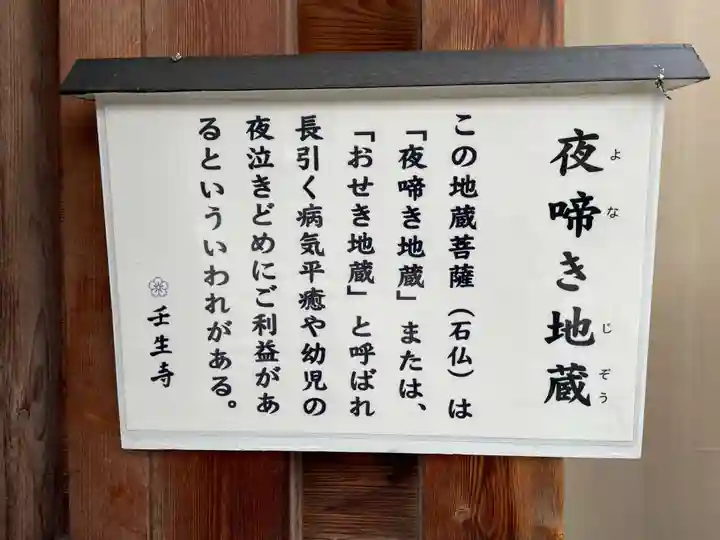 夜啼き地蔵
よな
じぞう
この地蔵菩薩（石仏）は
「夜啼き地蔵」または、
「おせき地蔵」と呼ばれ
長引く病気平癒や幼児の
夜泣きどめにご利益があ
るといういわれがある。
壬生寺